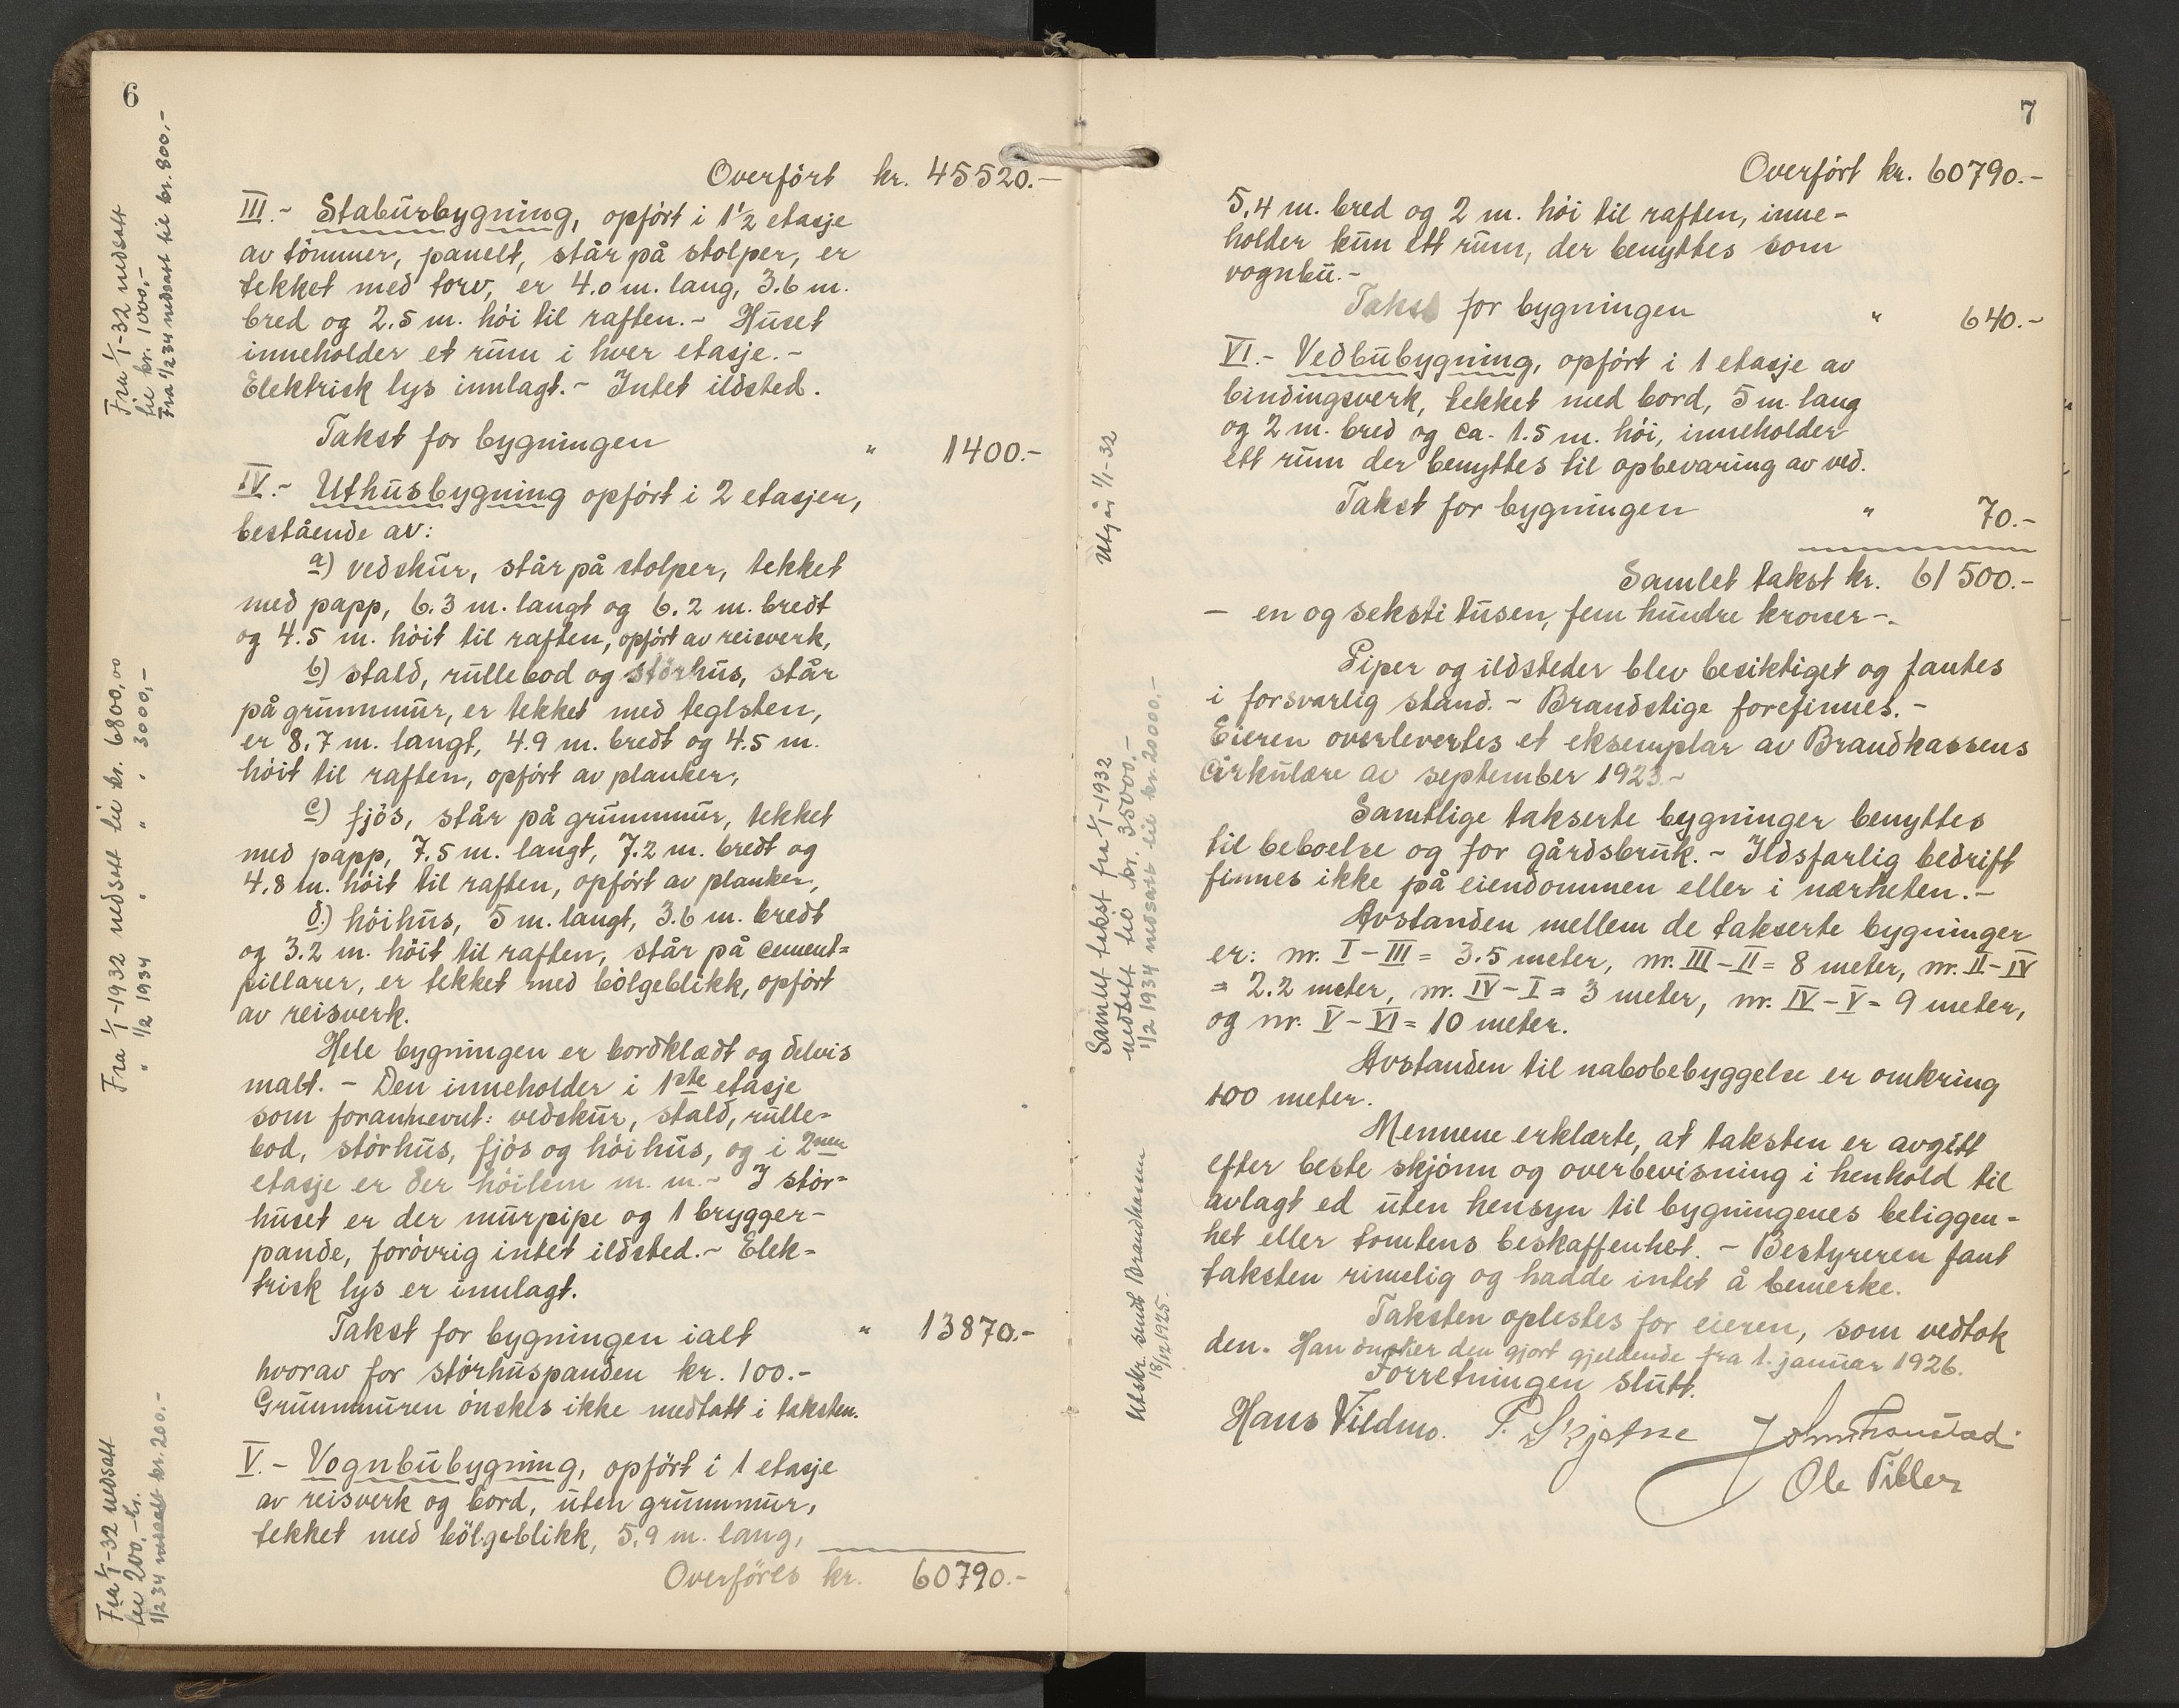 6
Overført kr. 45520.-
III.- Stabursbygning, opført i 1 1/2 etasje
av tømmer, panelt, står på stolper, er
tekket med torv, er 4.0 m. lang, 3.6 m.
bred og 2.5 m. høi til raften.- Huset
inneholder et rum i hver etasje.-
Elektrisk lys innlagt.- Intet ildsted.
Takst for bygningen " 1400.-
IV.- Uthusbygning opført i 2 etasjer,
bestående av:
a) vedskur, står på stolper, tekket
med papp, 6.3 m. langt og 6.2 m. bredt
og 4.5 m. høit til raften, opført av reisverk,
b) stald, rullebod og størhus, står
på grunnmur, er tekket med teglsten,
er 8.7 m. langt, 4.9 m. bredt og 4.5 m.
høit til raften, opført av planker,
c) fjøs, står på grunnmur, tekket
med papp, 7.5 m. langt, 7.2 m. bredt og
4.8 m. høit til raften, opført av planker,
d.) høihus, 5 m. langt, 3.6 m. bredt
og 3.2 m. høit til raften, står på cement=
pillarer, er tekket med bølgeblikk, opført
av reisverk.
Hele bygningen er bordklædt og delvis
malt. - Den inneholder i 1ste etasje
som forannevnt: vedskur, stald, rulle=
bod, størhus, fjøs og høihus, og i 2nen
etasje er der høilem m. m.- I stør=
huset er der murpipe og 1 brygger-
pande, forøvrig intet ildsted.- Elek=
trisk lys er innlagt.
Takst for bygningen ialt " 13870.-
hvorav for størhuspanden kr. 100.-
Grunnmuren ønskes ikke medtatt i taksten.
V.- Vognbubygning, opført i 1 etasje
av reisverk og bord, uten grunnmur,
tekket med bölgeblikk, 5.9 m. lang,
Overføres kr. 60790.-
Fra 1/1-32 nedsatt
til kr. 1000,-
Fra 1/2 34 nedsatt til kr. 800,-
Fra 1/1-1932 nedsatt til kr. 6800,00
" 1/2 1934 " " " 3000,-
Fra 1/1-32 nedsatt
til 200,- kr.
1/2 34 nedsatt kr. 200.-
7
Overført kr. 60790.-
5.4 m. bred og 2 m. høi til raften, inne=
holder kun ett rum, der benyttes som
vognbu.-
Takst for bygningen " 640.-
VI.- Vedbubygning, opført i 1 etasje av
bindingsverk, tekket med bord, 5 m. lang
og 2 m. bred og ca. 1.5 m. høi, inneholder
ett rum der benyttes til opbevaring av ved.
Takst for bygningen " 70.-
Samlet takst kr. 61500.-
- en og seksti tusen, fem hundre kroner-.
Piper og ildsteder blev besiktiget og fantes
i forsvarlig stand.- Brandstige forefinnes.-
Eieren overlevertes et eksemplar av Brandkassens
Cirkulære av september 1923.-
Samtlige takserte bygninger benyttes
til beboelse og for gårdsbruk.- Ildsfarlig bedrift
finnes ikke på eiendommen eller i nærheten.-
Avstanden mellem de takserte bygninger
er: nr. I-III = 3.5 meter, nr. III-II = 8 meter, nr. II-IV
= 2.2 meter, nr. IV-I = 3 meter, nr. IV-V = 9 meter,
og nr. V-VI = 10 meter.
Avstanden til nabobebyggelse er omkring
100 meter.
Mennene erklærte, at taksten er avgitt
efter beste skjønn og overbevisning i henhold til
avlagt ed uten hensyn til bygningenes beliggen=
het eller tomtens beskaffenhet.- Bestyreren fant
taksten rimelig og hadde intet å bemerke.
Taksten oplestes for eieren, som vedtok
den. Han ønsker den gjort gjeldende fra 1. januar 1926.
Forretningen slutt.
Hans Vildmo. P. Skjetne John
Ole Tiller
Utgår 1/1-32
Samlet takst fra 1/1-1932
nedsatt til kr. 35000.-
1/2 1934 nedsatt til kr. 20000,-
Utskr. sendt Brandkassen
18/12 1925.